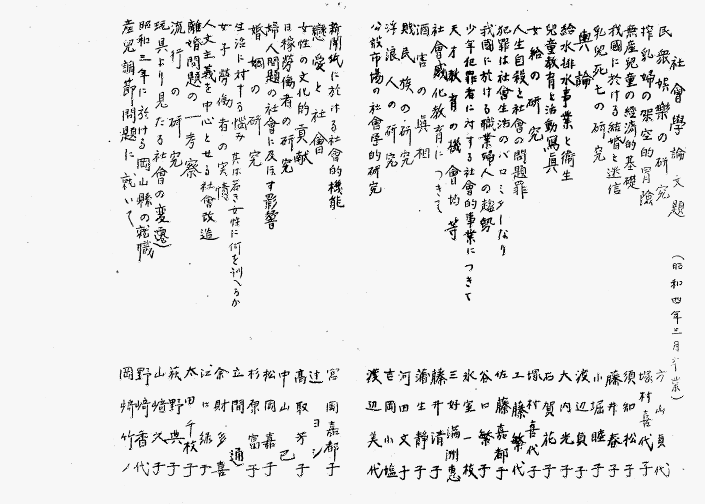 社會學論文題 (昭和四年三月卒業)
民衆娯樂の研究 方山貞代
搾乳婦の架空的冒險 塚村喜代子
無産兒童の經済的基礎 須和松子
我國に於ける結婚と迷信 藤井春子
乳兒死亡の研究 小堀睦子
輿論 渡辺貞子
給水排水事業と衛生 大内光子
兒童教育と活動寫眞 石賀花子
女給の研究 塚村喜代子
人生自殺と社會の問題 工藤繁代
犯罪は社會生活のバロメーターなり 佐藤嘉都子
我國に於ける職業婦人の趨勢 谷口繁子
少年犯罪者に対する社會的事業につきて 氷室一枝
天才教育の機會均等 三好満洲恵
社會感化教育につきて 藤井清子
酒害の眞相 蒲生靜子
賎民族の研究 河田文子
浮浪人の研究 吉岡小塩
公設市場の社會學的研究 渡辺美代
新聞紙に於ける社會的機能 宮岡嘉都子
戀愛と社會 辻ヨシ
女性の文化的貢献 高取芳子
日稼勞働者の研究 中山己
婦人問題の社會に及ほす影響 松岡嘉子
婚姻の研究 杉原富子
生活に対する悩み 或は若き女性に何を訓へるか 立間通
女子勞働者の実情 余財多喜
人文主義を中心とせる社會改造 江口綾子
離婚問題の一考察 太田千枝
流行の研究 荻野典子
玩具より見たる社會の変遷 山崎久子
昭和三年に於ける岡山縣の就職 野崎香代
産兒調節問題に就いて 岡崎竹ノ